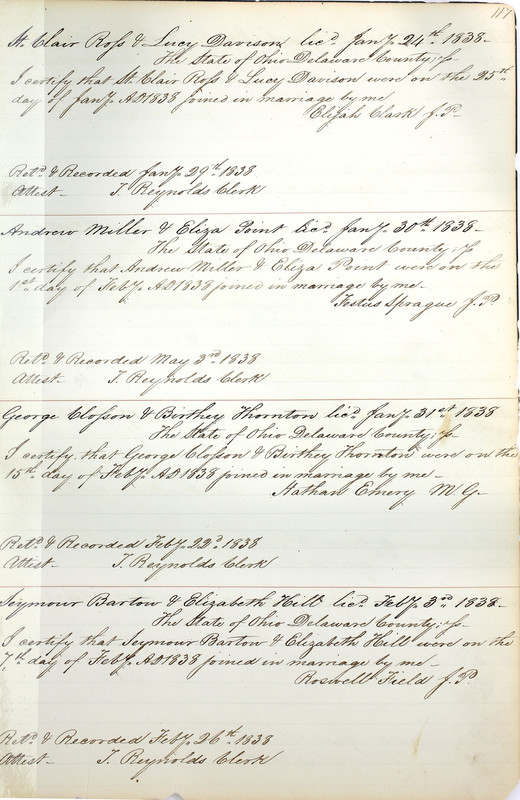 117
St. Clair Ross & Lucy Davison licd. Jany. 24th. 1838-
The State of Ohio Delaware County; ss
I certify that St. Clair Ross & Lucy Davison were on the 25th
day of Jany. AD 1838 joined in marriage by me
Elijah Clark J. P-
Retd. & Recorded Jany. 29th. 1838
Attest- T. Reynolds Clerk
Andrew Miller & Eliza Point licd. Jany. 30th 1838-
The State of Ohio Delaware County; ss
I certify that Andrew Miller & Eliza Point were on the
1st day of Feby. AD 1838 joined in marriage by me-
Festus Sprague J. P.
Retd. & Recorded May 3rd 1838
Attest- T. Reynolds Clerk
George Closson & Birthey Thornton licd. Jany. 31st 1838
The State of Ohio Delaware County; ss-
I certify that George Closson & Birthey Thornton were on the
15th day of Feby. AD 1838 joined in marriage by me-
Nathan Emery M. G-
Retd. & Recorded Feby. 22d. 1838
Attest- T. Reynolds Clerk
Seymour Barton & Elizabeth Hill licd. Feby. 3rd 1838-
The State of Ohio Delaware County; ss-
I certify that Seymour Barton & Elizabeth Hill were on the
7th day of Feby. AD 1838 joined in marriage by me-
Roswell Field J. P.
Retd. & Recorded Feby. 26th. 1838
Attest- T. Reynolds Clerk